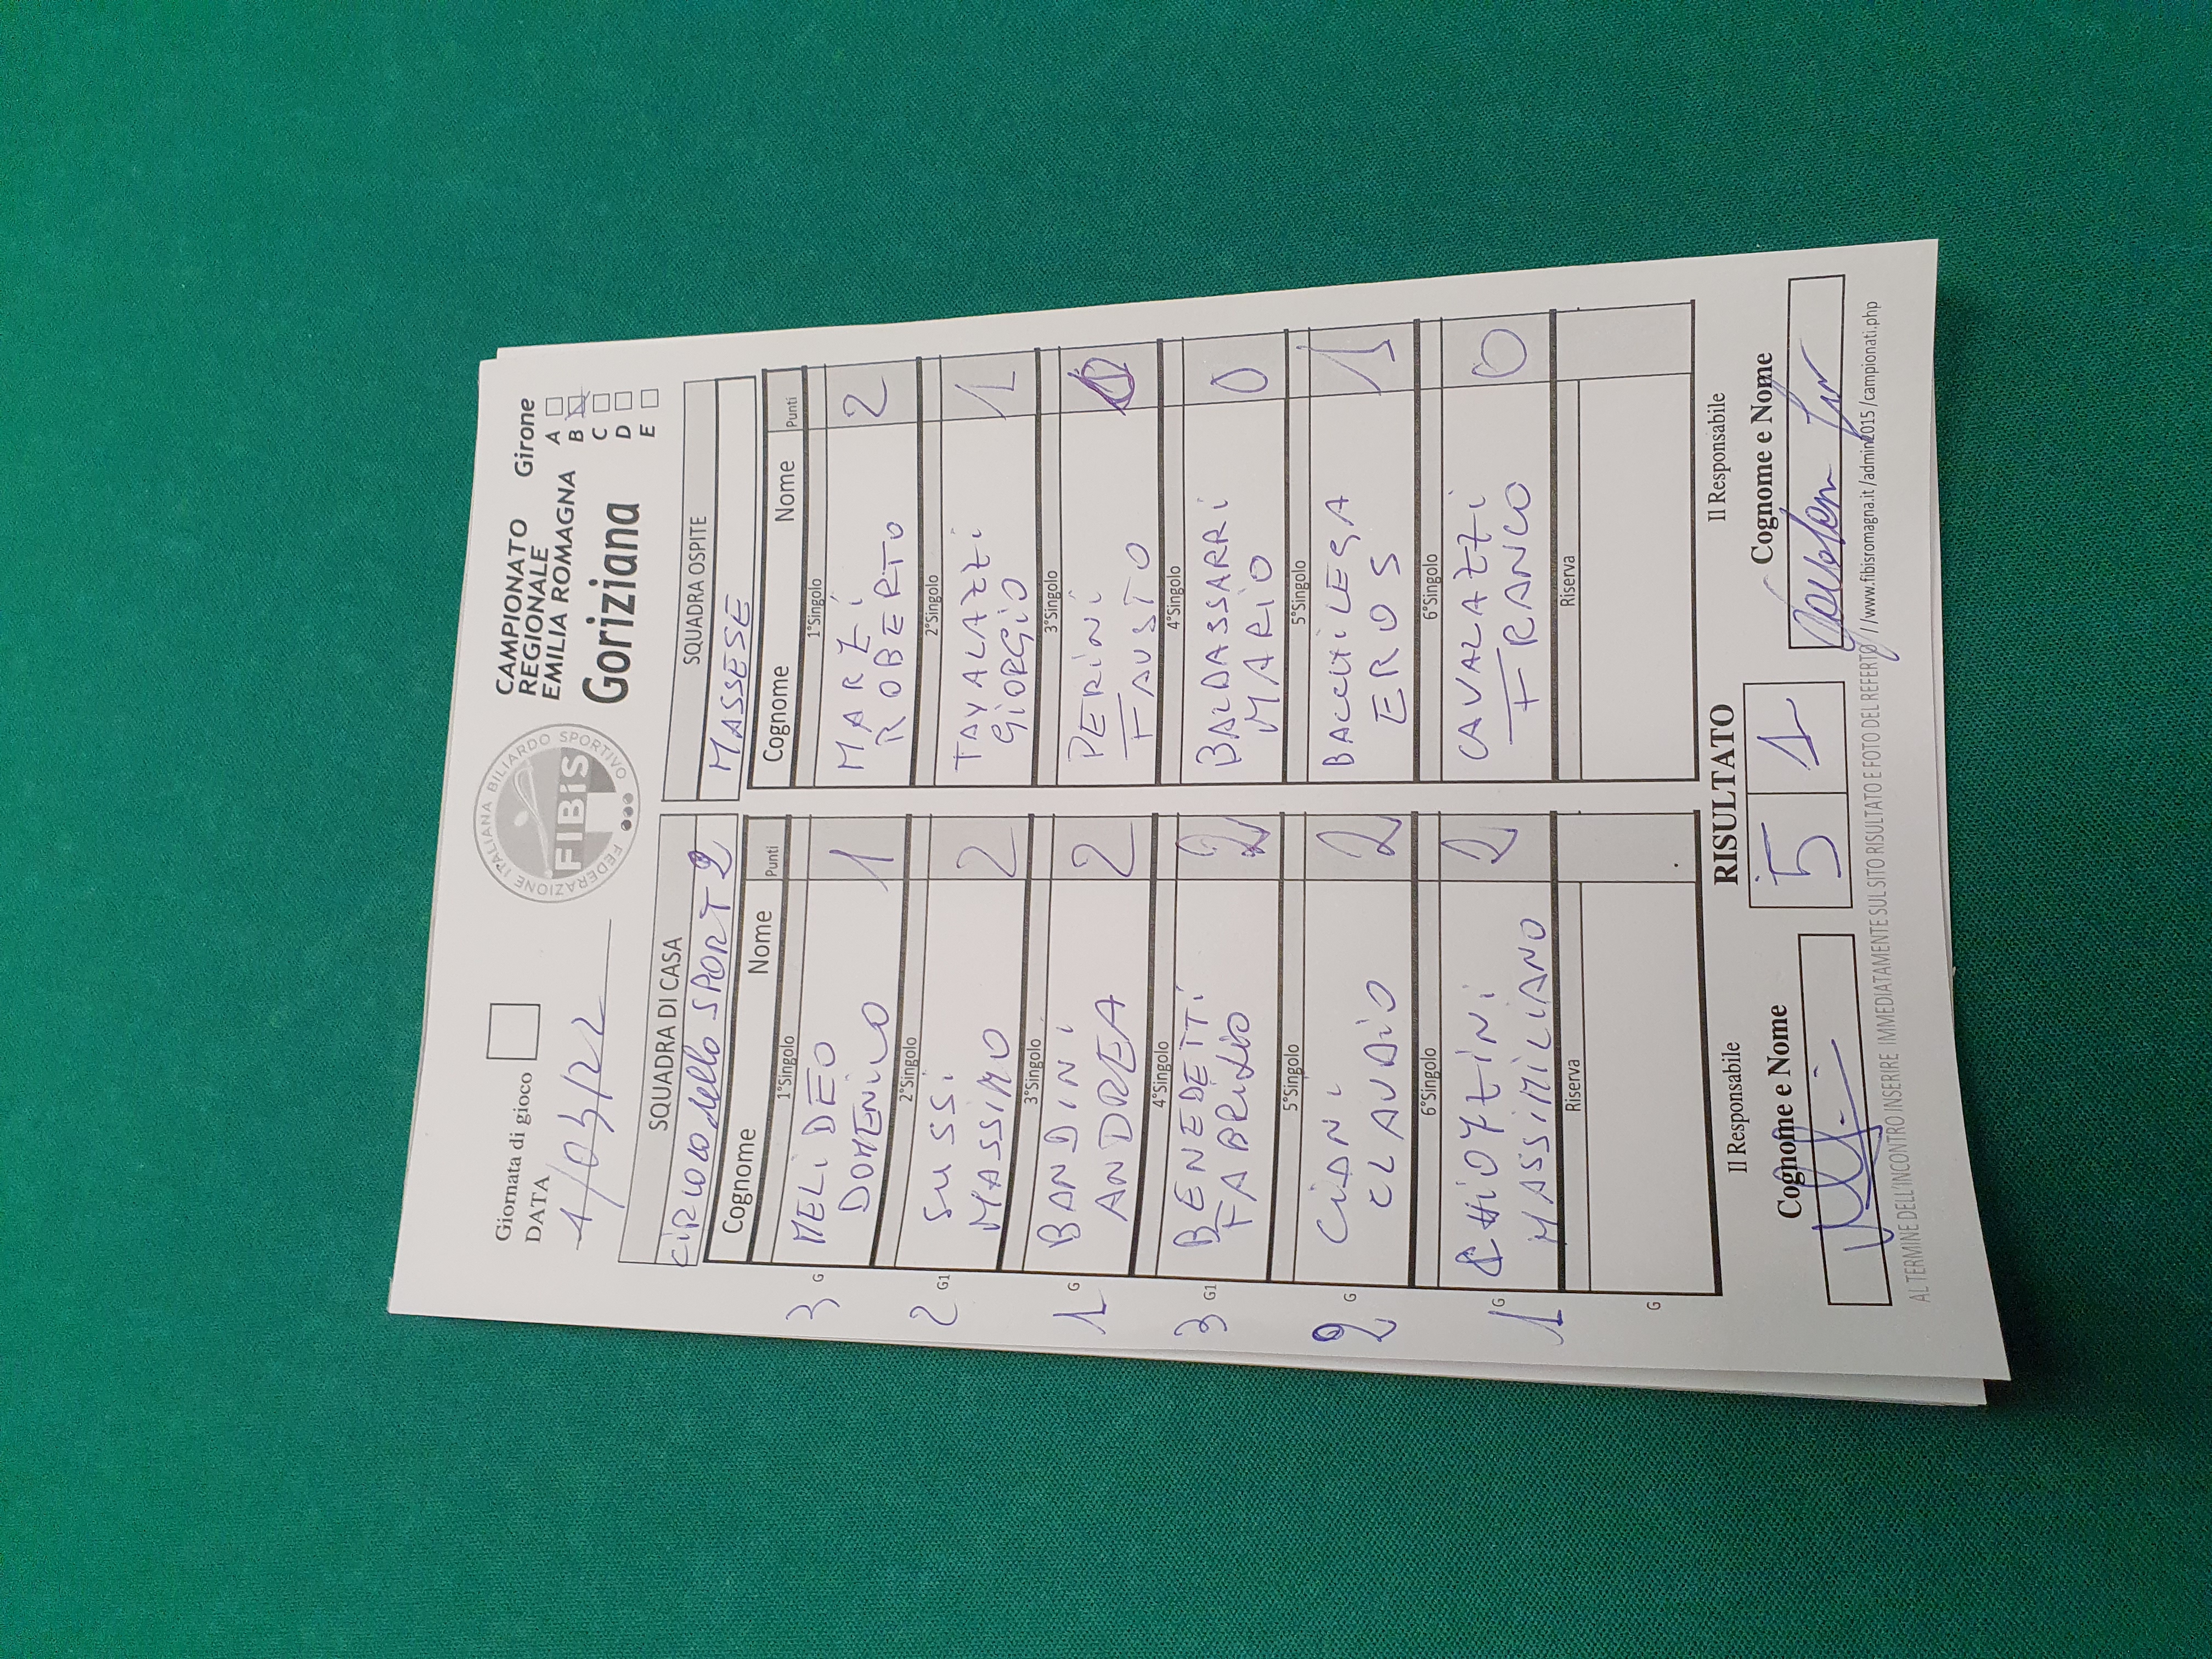 Giornata di gioco
DATA
1/03/22
FEDERAZIONE ITALIANA BILIARDO SPORTIVO
FIBiS
CAMPIONATO
REGIONALE
EMILIA ROMAGNA
Goriziana
Girone
A
B
C
D
E
SQUADRA DI CASA
CIRCOLO dello SPORT 2
SQUADRA OSPITE
MASSESE
Cognome Nome Punti
Cognome Nome Punti
1°Singolo
3 G MELIDEO
DOMENICO 1
1°Singolo
MARZI
ROBERTO 2
2°Singolo
2 G1 SUSSI
MASSIMO 2
2°Singolo
GIORGIO 1
3°Singolo
1 G BANDINI
ANDREA 2
3°Singolo
PERINI
FAUSTO 0
4°Singolo
3 G1 BENEDETTI
FABRIZIO 2
4°Singolo
BALDASSARRI
MARIO 0
5°Singolo
2 G CIANI
CLAUDIO 2
5°Singolo
BACCHILEGA
EROS 1
6°Singolo
1 G
MASSIMILIANO 2
6°Singolo
CAVALAZZI
FRANCO 0
Riserva
G
Riserva
Il Responsabile
Cognome e Nome
RISULTATO
5 1
Il Responsabile
Cognome e Nome
AL TERMINE DELL'INCONTRO INSERIRE IMMEDIATAMENTE SUL SITO RISULTATO E FOTO DEL REFERTO //www.fibisromagna.it/admin2015/campionati.php